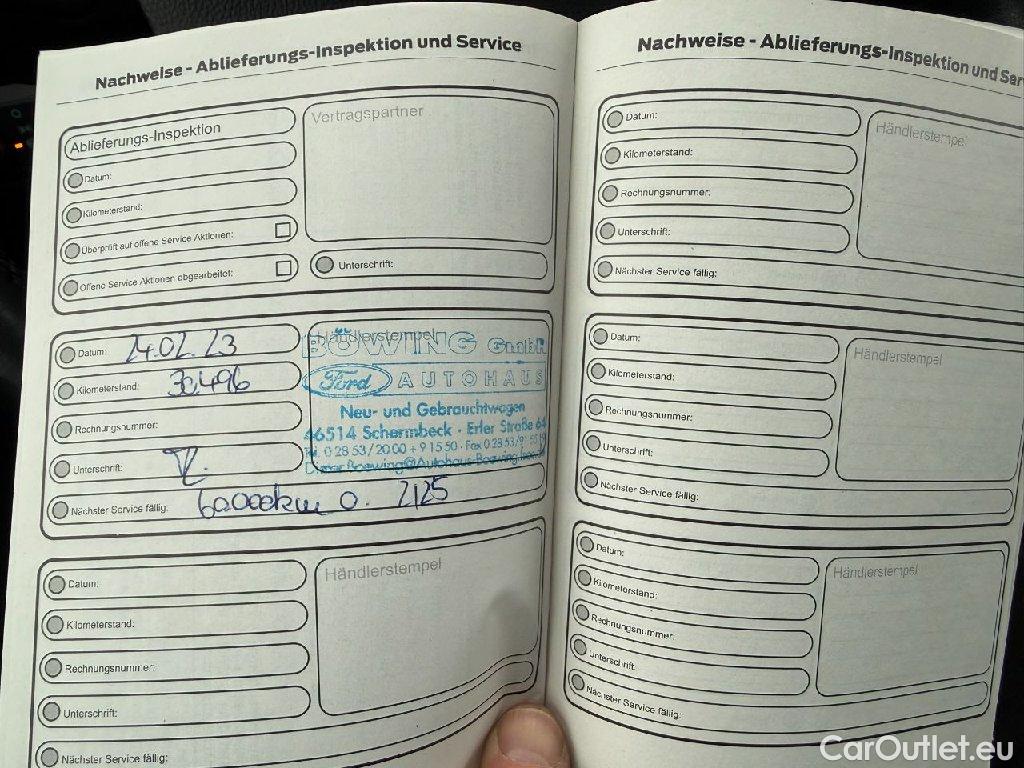 Nachweise - Ablieferungs-Inspektion und Service
Ablieferungs-Inspektion
Vertragspartner
Datum:
Kilometerstand:
Überprüft auf offene Service Aktionen:
Offene Service Aktionen abgearbeitet:
Unterschrift:
Datum: 24.02.23
Kilometerstand: 30.496
Rechnungsnummer:
Unterschrift:
Nächster Service fällig: 60000km o. 2/25
Händlerstempel
BÖWING GmbH
Ford AUTOHAUS
Neu- und Gebrauchtwagen
46514 Schermbeck · Erler Straße
Tel. 0 28 53 / 20 00 + 9 15 50 · Fax 0 28 53 /
Datum:
Kilometerstand:
Rechnungsnummer:
Unterschrift:
Nächster Service fällig:
Händlerstempel
Nachweise - Ablieferungs-Inspektion und Ser
Datum:
Kilometerstand:
Rechnungsnummer:
Unterschrift:
Nächster Service fällig:
Händlerstempel
Datum:
Kilometerstand:
Rechnungsnummer:
Unterschrift:
Nächster Service fällig:
Händlerstempel
Datum:
Kilometerstand:
Rechnungsnummer:
Unterschrift:
Nächster Service fällig:
Händlerstempel
CarOutlet.eu